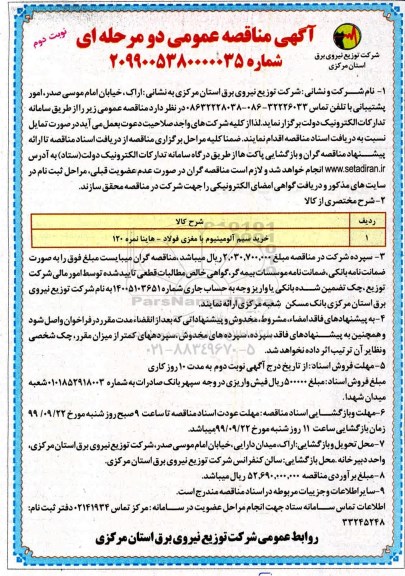 نوبت دوم
آگهی مناقصه عمومی دو مرحله ای
شماره ۲۰۹۹۰۰۵۳۸۰۰۰۰۰۳۵
شرکت توزیع نیروی برق
استان مرکزی
۱- نام شرکت و نشانی: شرکت توزیع نیروی برق استان مرکزی به نشانی: اراک، خیابان امام موسی صدر، امور
پشتیبانی با تلفن تماس ۳۲۲۲۶۰۳۳-۰۸۶ و ۰۸۶۳۲۲۲۸۰۳۸ در نظر دارد مناقصه عمومی زیر را از طریق سامانه
تدارکات الکترونیک دولت برگزار نماید. لذا از کلیه شرکت های واجد صلاحیت دعوت بعمل می آید در صورت تمایل
نسبت به دریافت اسناد مناقصه اقدام نمایند. ضمنا کلیه مراحل برگزاری مناقصه از دریافت اسناد مناقصه تا ارائه
پیشنهاد مناقصه گران و بازگشایی پاکت ها از طریق درگاه سامانه تدارکات الکترونیک دولت (ستاد) به آدرس
www.setadiran.ir انجام خواهد شد و لازم است مناقصه گران در صورت عدم عضویت قبلی، مراحل ثبت نام در
سایت های مذکور و دریافت گواهی امضای الکترونیکی را جهت شرکت در مناقصه محقق سازند.
۲- شرح مختصری از کالا
ردیف شرح کالا
۱ خرید سیم آلومینیوم با مغزی فولاد - هاینا نمره ۱۲۰
۳- سپرده شرکت در مناقصه مبلغ ۲.۰۳۰.۷۰۰.۰۰۰ ریال میباشد، مناقصه گران میبایست مبلغ فوق را به صورت
ضمانت نامه بانکی، ضمانت نامه موسسات بیمه گر، گواهی خالص مطالبات قطعی تایید شده توسط امور مالی شرکت
توزیع، چک تضمین شده بانکی یا واریز وجه به حساب جاری شماره ۱۴۰۰۵۱۰۳۶۵۱ به نام شرکت توزیع نیروی
برق استان مرکزی بانک مسکن شعبه مرکزی ارائه نمایند.
۴- به پیشنهادهای فاقد امضاء، مشروط، مخدوش و پیشنهاداتی که بعد از انقضاء مدت مقرر در فراخوان واصل شود
و همچنین به پیشنهادهای فاقد سپرده، سپرده های مخدوش، سپرده های کمتر از میزان مقرر، چک شخصی
و نظایر آن ترتیب اثر داده نخواهد شد.
۵- مهلت فروش اسناد: از تاریخ درج آگهی نوبت دوم به مدت ۱۰ روز کاری
مبلغ فروش اسناد: مبلغ ۵۰۰۰۰۰ ریال فیش واریزی در وجه سپهر بانک صادرات به شماره ۰۱۰۱۸۵۲۹۱۸۰۰۳ شعبه
میدان شهدا.
۶- مهلت و بازگشایی اسناد مناقصه: مهلت عودت اسناد مناقصه تا ساعت ۹ صبح روز شنبه مورخ ۹۹/۰۹/۲۲
زمان بازگشایی ساعت ۱۱ روز شنبه مورخ ۹۹/۰۹/۲۲ میباشد.
۷- محل تحویل و بازگشایی: اراک، میدان دارایی، خیابان امام موسی صدر، شرکت توزیع نیروی برق استان مرکزی،
واحد دبیرخانه. محل بازگشایی: سالن کنفرانس شرکت توزیع نیروی برق استان مرکزی.
۸- مبلغ برآوردی مناقصه ۵۲.۶۹۰.۰۰۰.۰۰۰ ریال میباشد.
۹- سایر اطلاعات و جزییات مربوطه در اسناد مناقصه مندرج است.
اطلاعات تماس سامانه ستاد جهت انجام مراحل عضویت در سامانه: مرکز تماس ۰۲۱۴۱۹۳۴ دفتر ثبت نام:
۳۳۲۴۵۲۴۸
روابط عمومی شرکت توزیع نیروی برق استان مرکزی